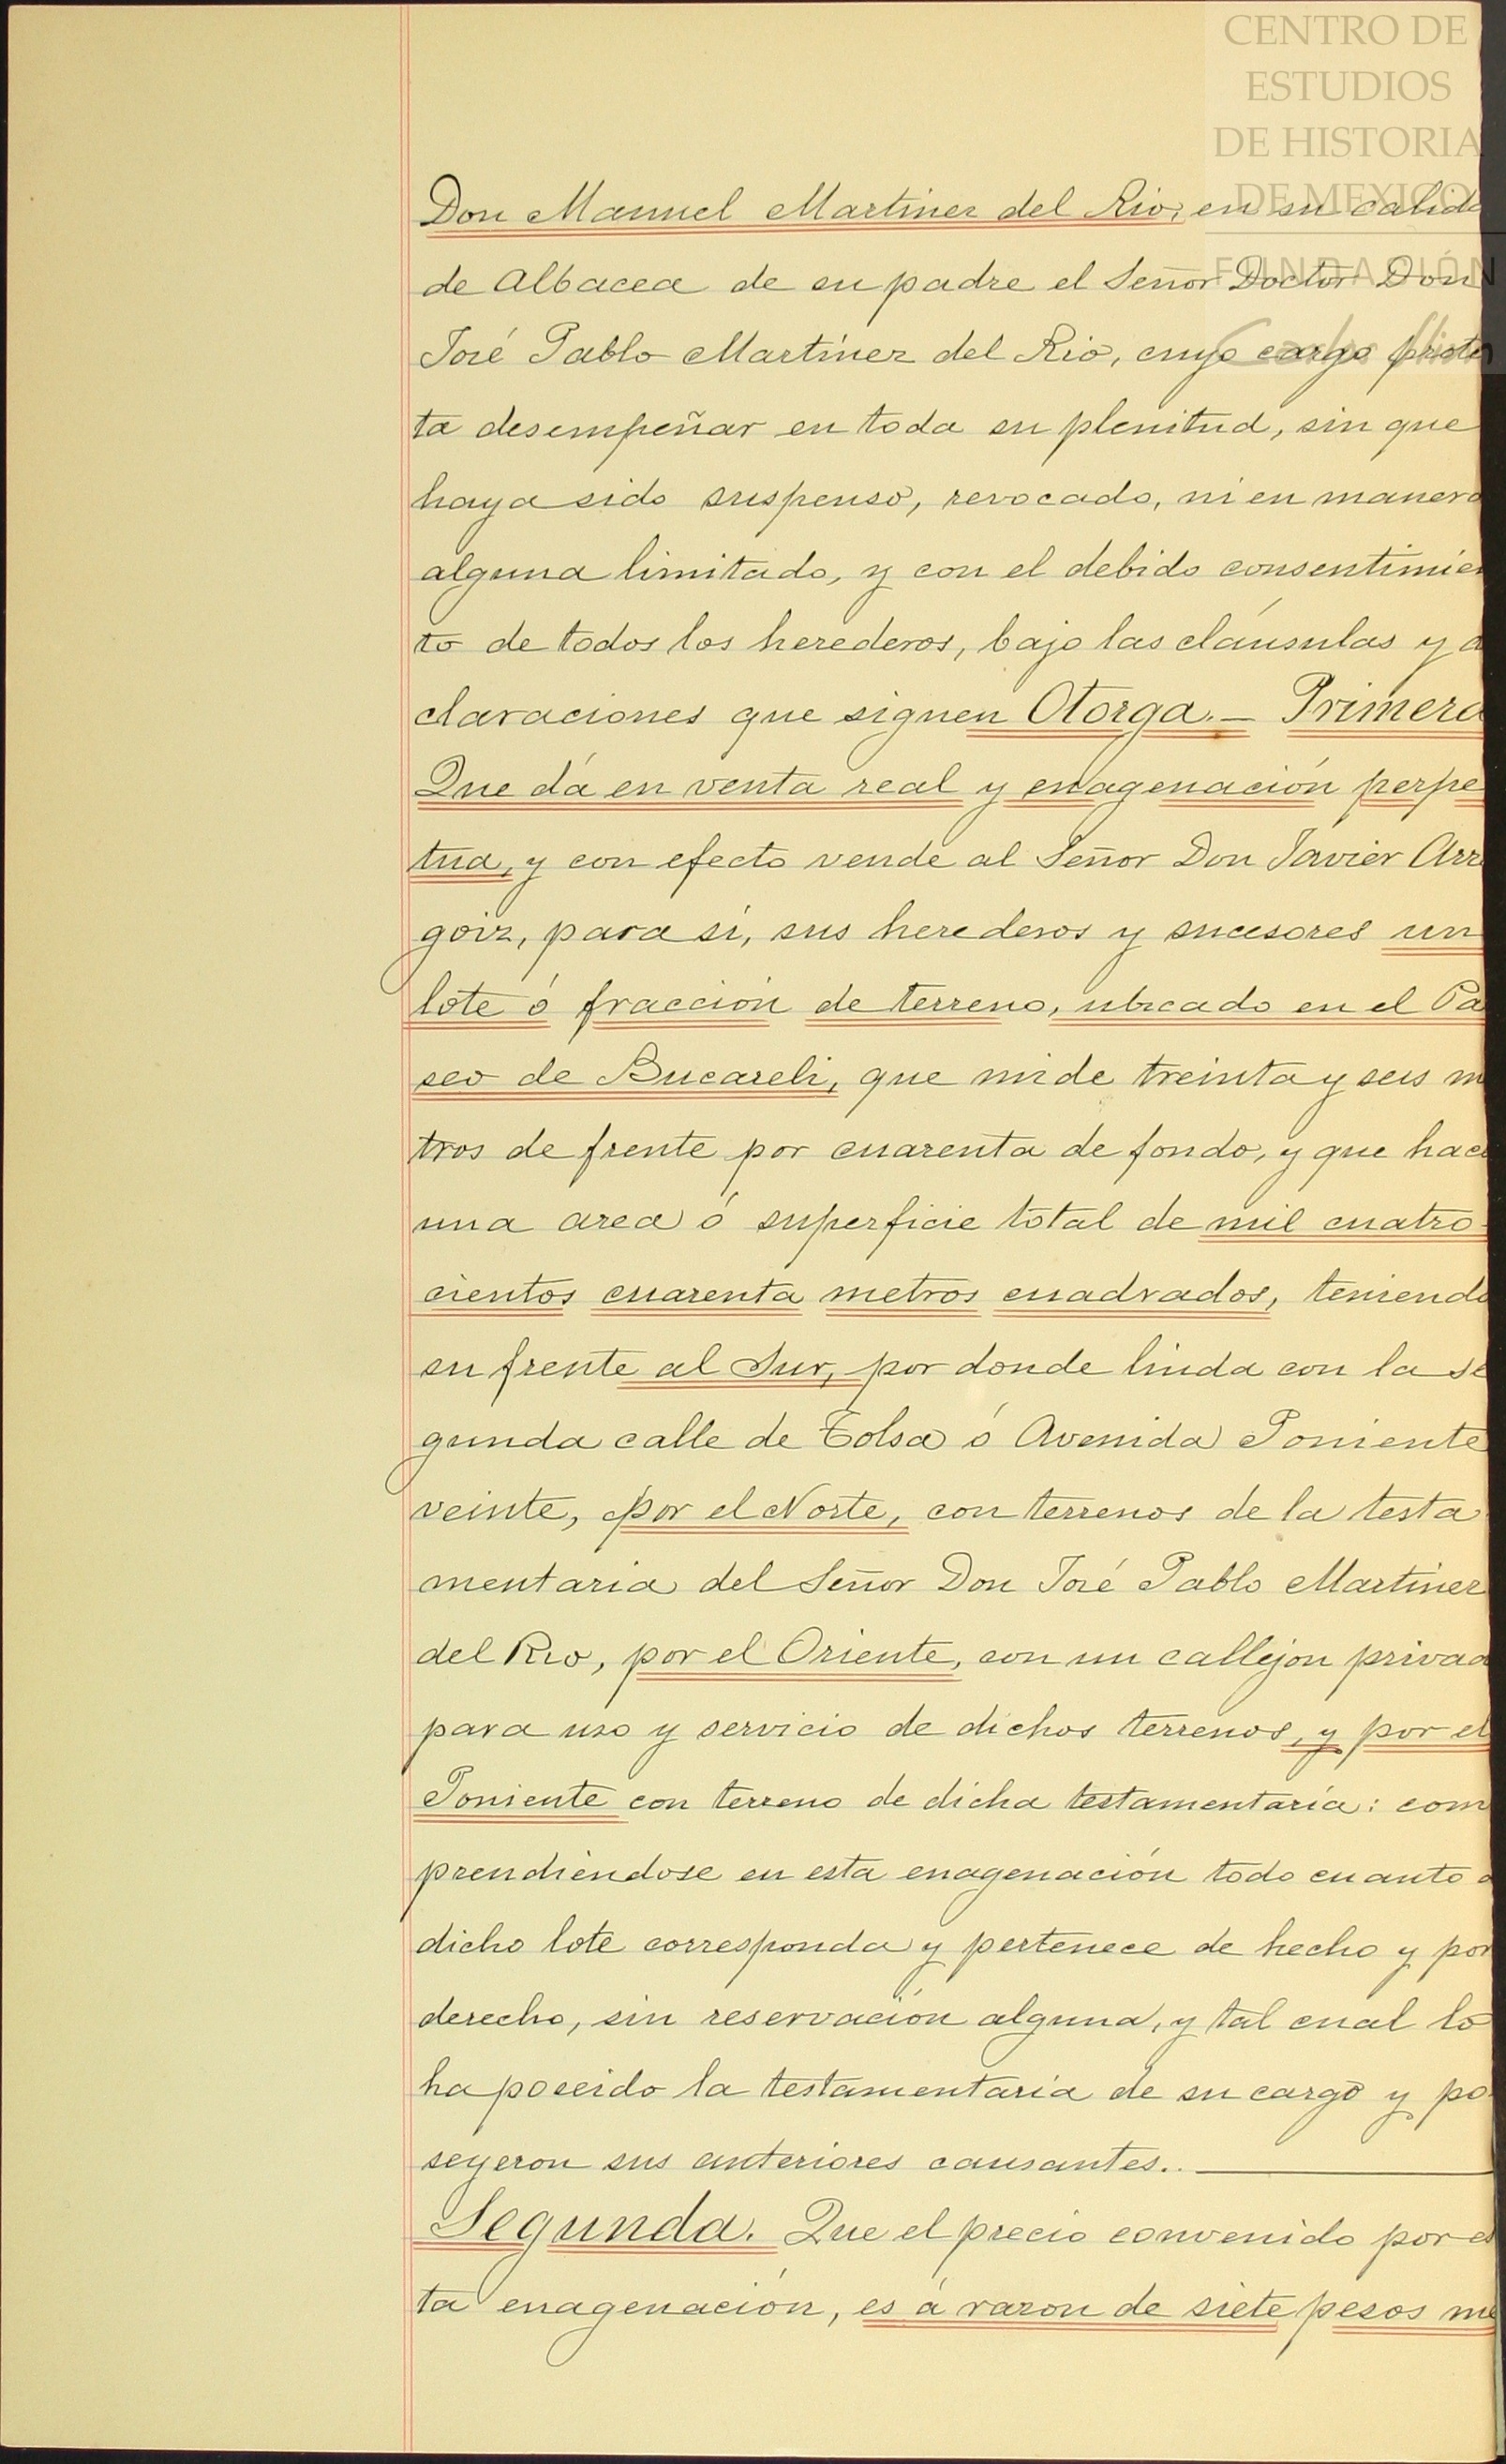 CENTRO DE
ESTUDIOS
DE HISTORIA
DE MEXICO
FUNDACIÓN
Don Manuel Martinez del Rio, en su calida
de Albacea de su padre el Señor Doctor Don
José Pablo Martínez del Rio, cuyo cargo protes
ta desempeñar en toda su plenitud, sin que
haya sido suspenso, revocado, ni en manera
alguna limitado, y con el debido consentimien
to de todos los herederos, bajo las cláusulas y a
claraciones que siguen Otorga.— Primera
Que dá en venta real y enagenación perpe
tua, y con efecto vende al Señor Don Javier Arra
goiz, para sí, sus herederos y sucesores un
lote ó fracción de terreno, ubicado en el Pa
seo de Bucareli, que mide treinta y seis m
tros de frente por cuarenta de fondo, y que hace
una area ó superficie total de mil cuatro-
cientos cuarenta metros cuadrados, teniendo
su frente al Sur, por donde linda con la se
gunda calle de Tolsa ó Avenida Poniente
veinte, por el Norte, con terrenos de la testa
mentaria del Señor Don José Pablo Martinez
del Rio, por el Oriente, con un callejon privad
para uso y servicio de dichos terrenos, y por el
Poniente con terreno de dicha testamentaría: com
prendiéndose en esta enagenación todo cuanto a
dicho lote corresponda y pertenece de hecho y por
derecho, sin reservación alguna, y tal cual lo
ha poseido la testamentaría de su cargo y po
seyeron sus anteriores causantes..
Segunda. Que el precio convenido por es
ta enagenación, es á razon de siete pesos me